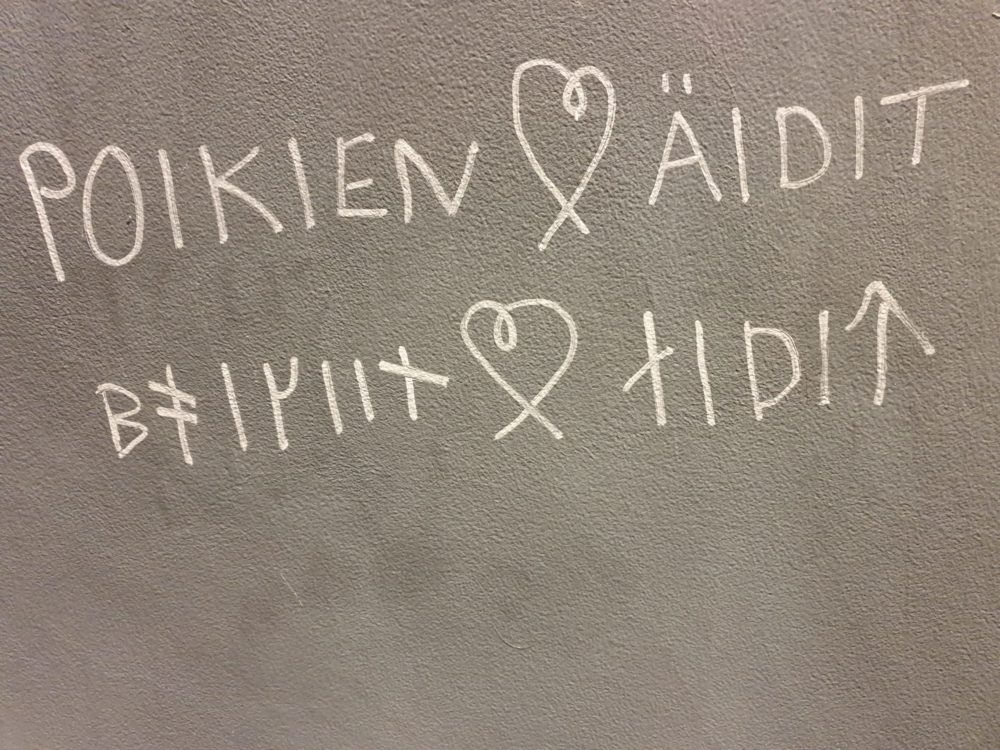 POIKIEN ♡ ÄIDIT
ᛒᚬᛁᚴᛁᛁᚾ ♡ ᛅᛁᚦᛁᛏ